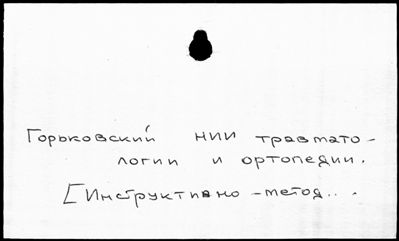 Горьковский НИИ травмато-
логии и ортопедии.
[Инструктивно-метод...